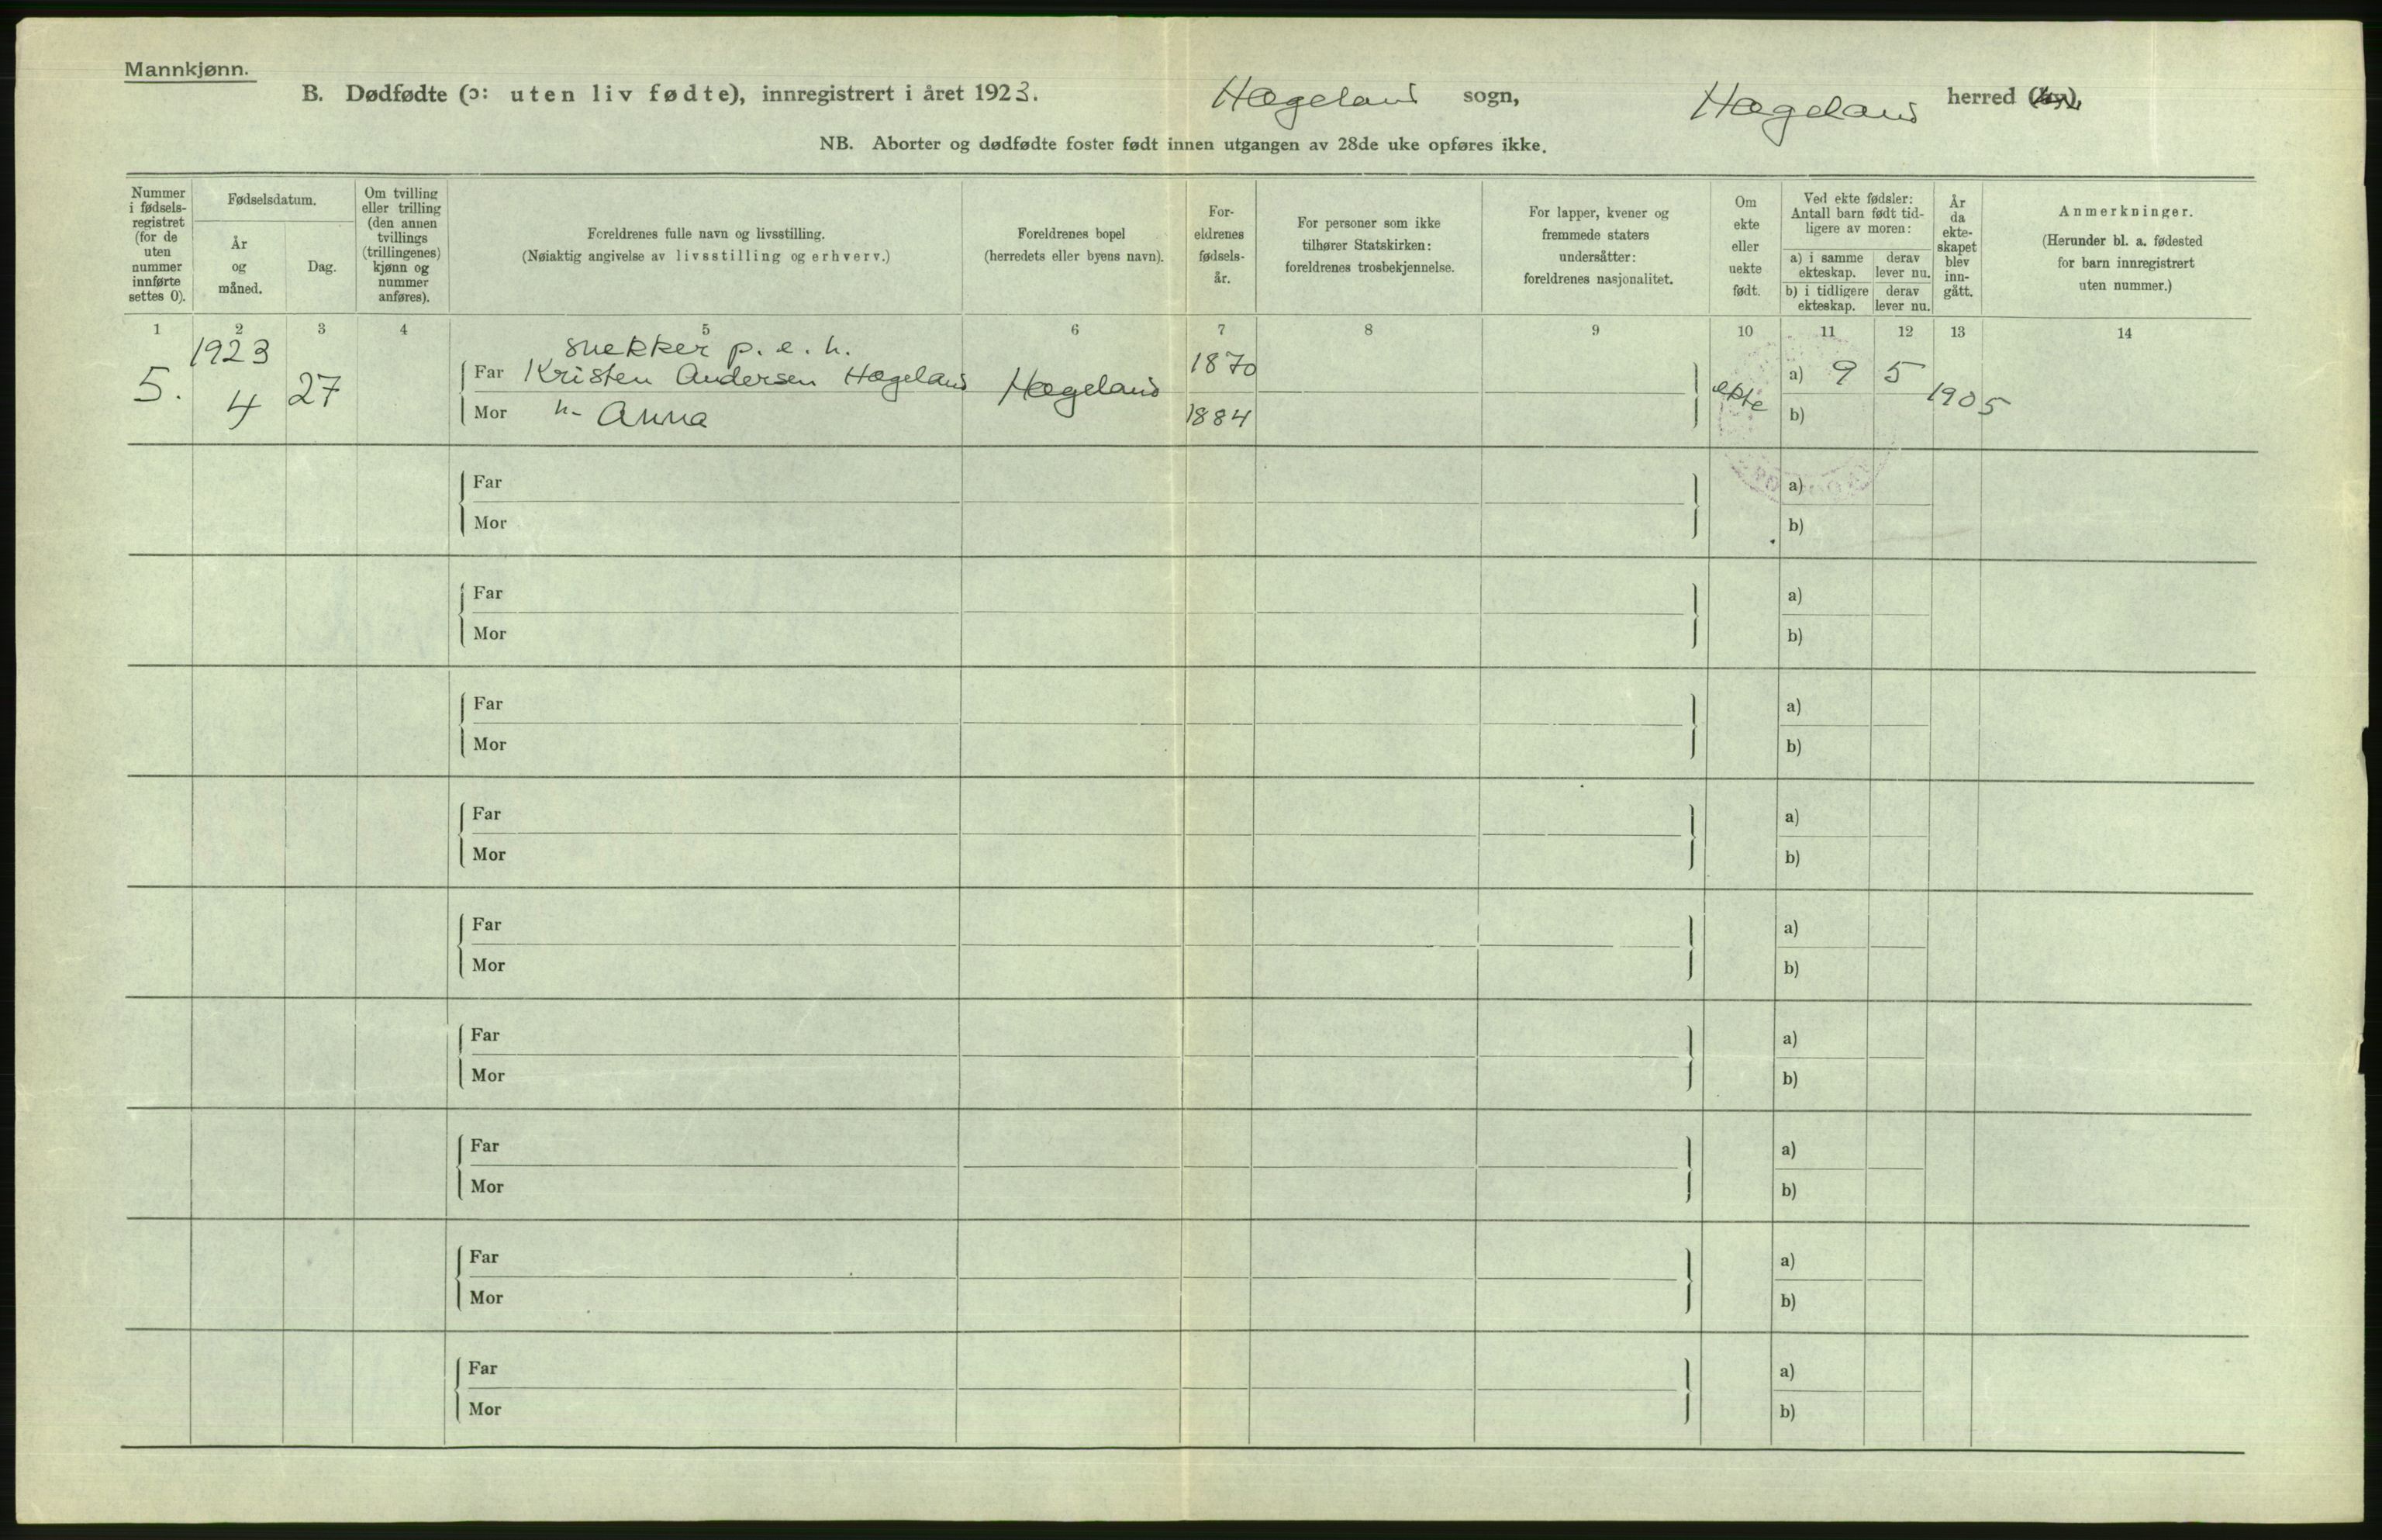 Mannkjønn.
B. Dødfødte (ɔ: uten liv fødte), innregistrert i året 1923. Hægeland sogn, Hægeland herred (by),
NB. Aborter og dødfødte foster født innen utgangen av 28de uke opføres ikke.
Nummer i fødsels- registret (for de uten nummer innførte settes 0).
Fødselsdatum.
År og måned.
Dag.
Om tvilling eller trilling (den annen tvillings (trillingenes) kjønn og nummer anføres).
Foreldrenes fulle navn og livsstilling.
(Nøiaktig angivelse av livsstilling og erhverv.)
Foreldrenes bopel
(herredets eller byens navn).
For- eldrenes fødsels- år.
For personer som ikke
tilhører Statskirken:
foreldrenes trosbekjennelse.
For lapper, kvener og
fremmede staters
undersåtter:
foreldrenes nasjonalitet.
Om ekte eller uekte født.
Ved ekte fødsler:
Antall barn født tid-
ligere av moren:
a) i samme ekteskap.
derav lever nu.
b) i tidligere ekteskap.
derav lever nu.
År da ekte- skapet blev inn- gått.
Anmerkninger.
(Herunder bl. a. fødested
for barn innregistrert
uten nummer.)
1 2 3 4 5 6 7 8 9 10 11 12 13 14
1923 snekker p. e. h.
5. 4 27 Far Kristen Andersen Hægeland Hægeland 1870 ekte a) 9 5 1905
Mor h- Anna 1884 b)
Far a)
Mor b)
Far a)
Mor b)
Far a)
Mor b)
Far a)
Mor b)
Far a)
Mor b)
Far a)
Mor b)
Far a)
Mor b)
Far a)
Mor b)
Far a)
Mor b)